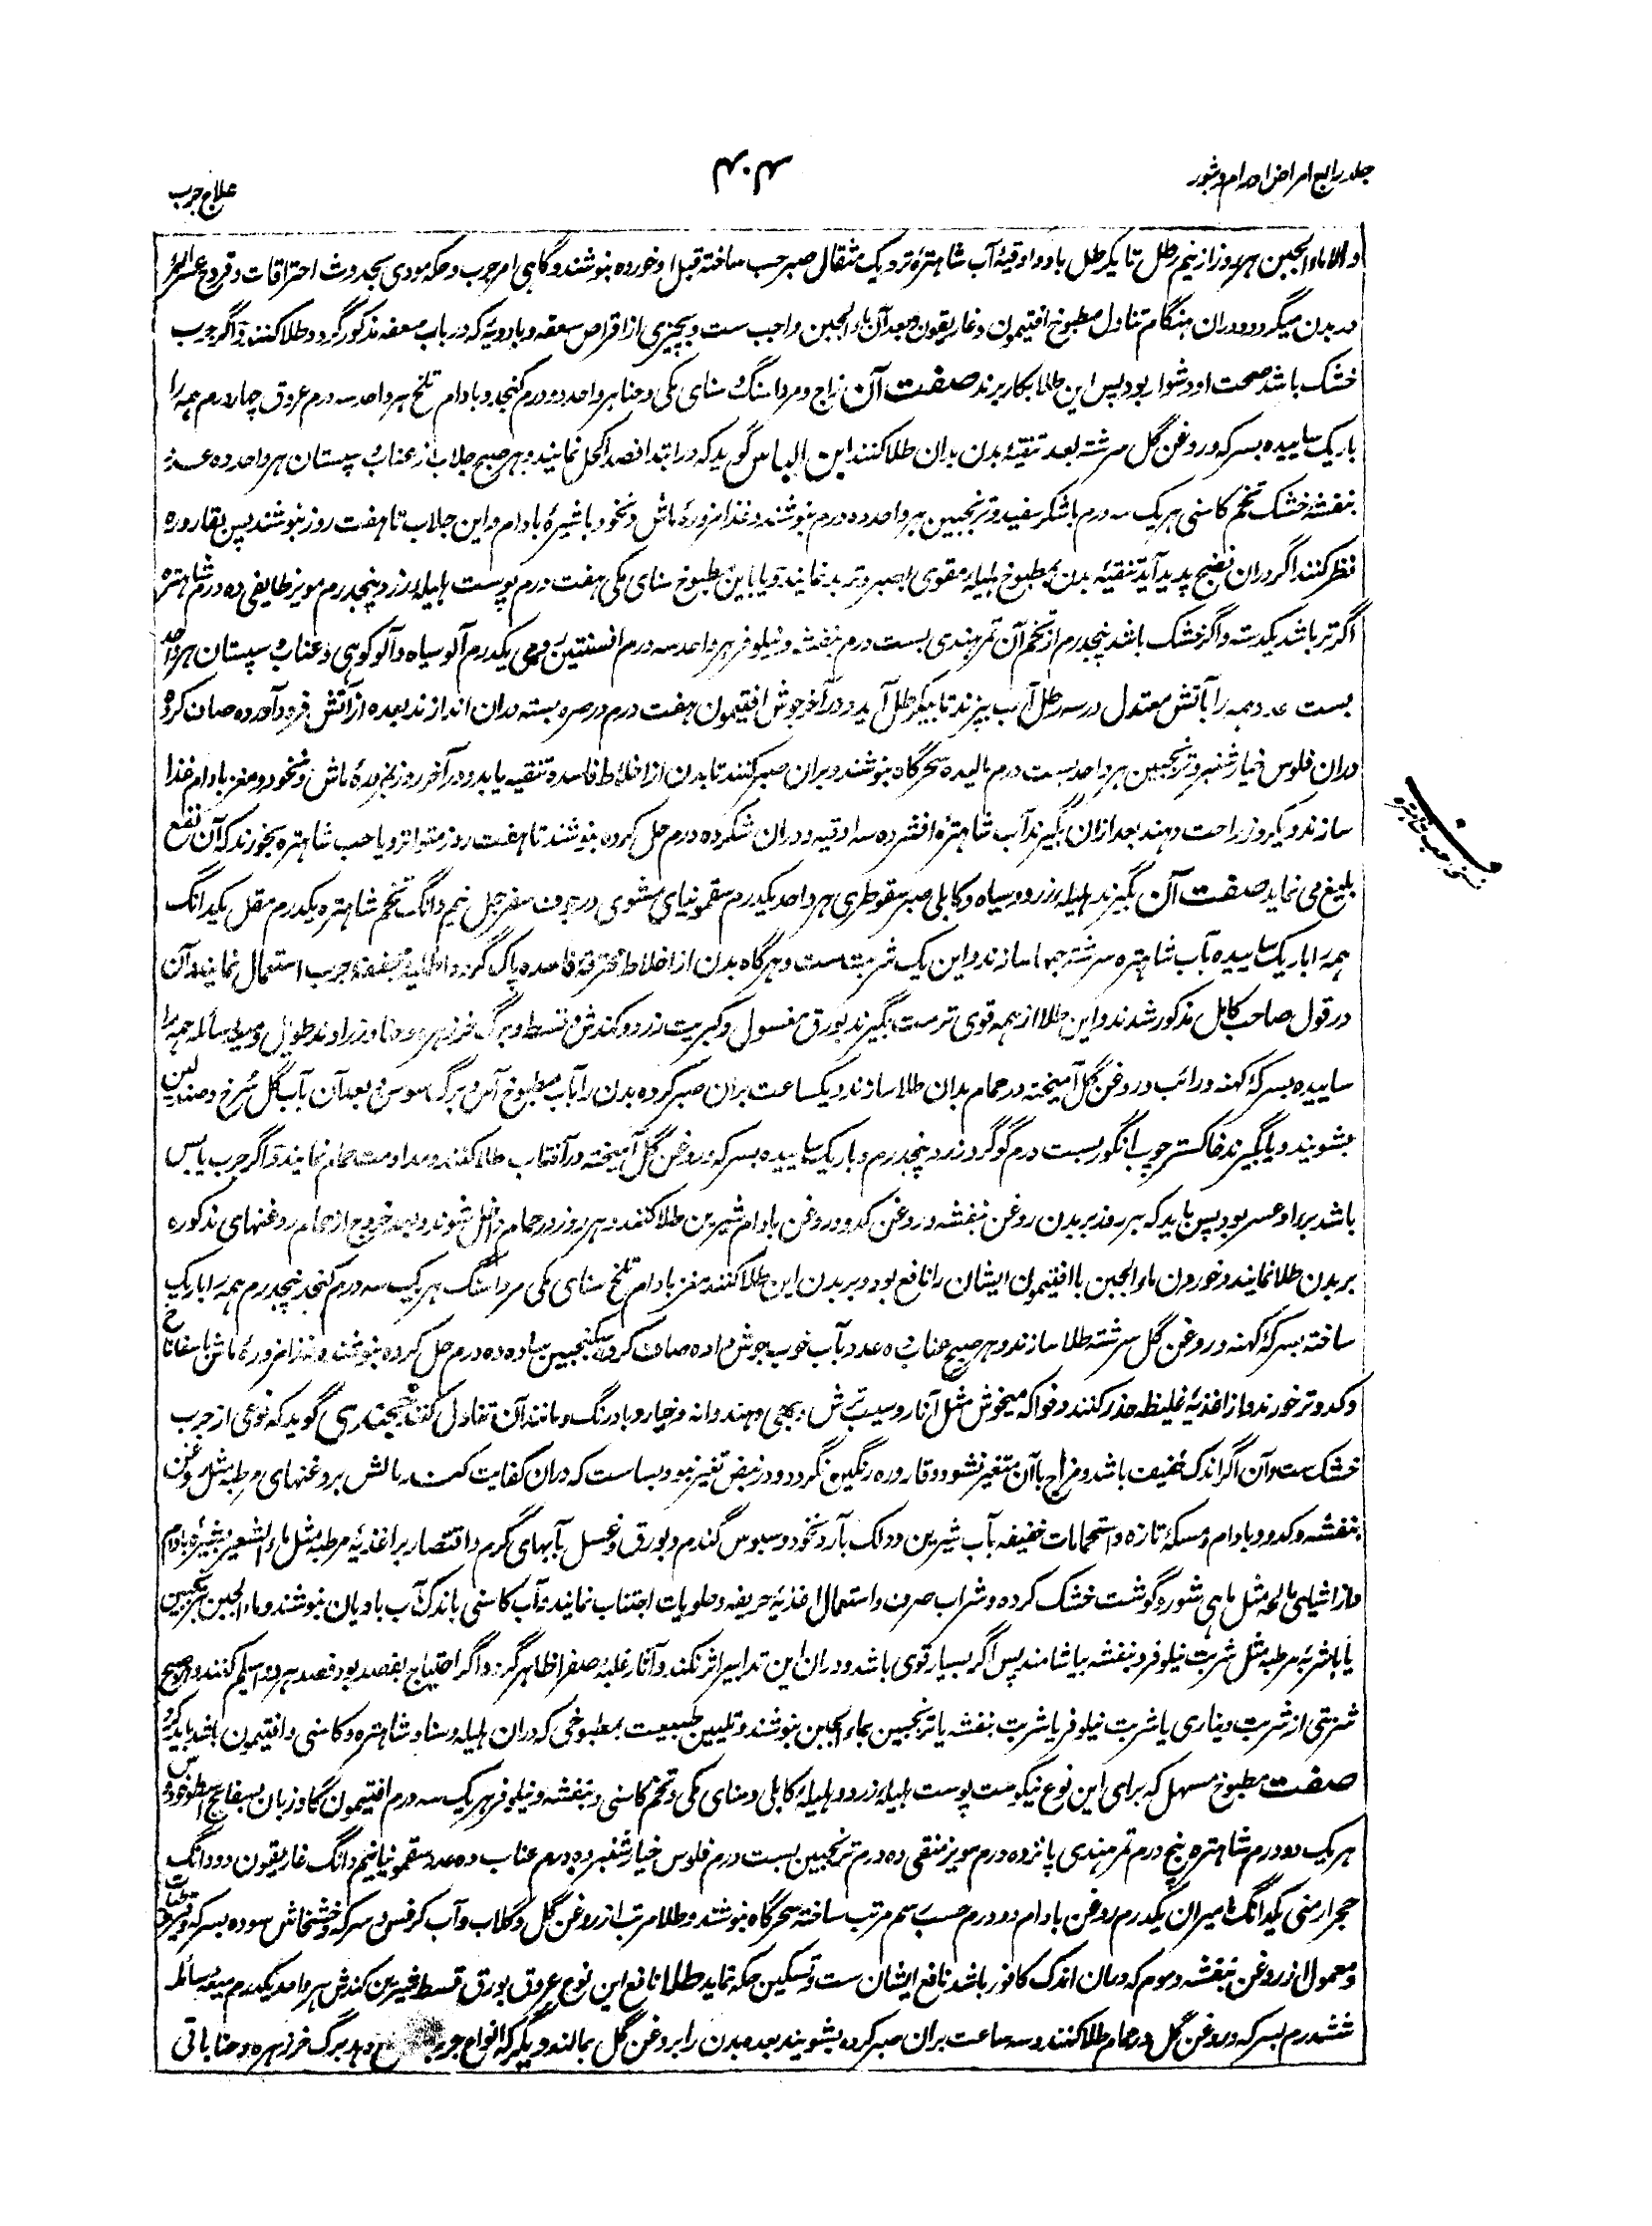 جلد رابع امراض اورام و بثور
۴۰۴
علاج جرب
والا ماء الجبن هر روز از نیم رطل تا یکرطل با دو اوقیه آب شاهتره تر و یک مثقال صبر حب ساخته قبل او خورده بنوشند و گاهی امر جرب و حکه مودی بحدوث احتراقات و قروح عسر البرء
در بدن میگردد و دران هنگام تناول مطبوخ افتیمون و غاریقون و بعد آن ماء الجبن واجب ست و بچیزی از اقراص سعفه و بادویه که در باب سعفه مذکور گردد طلا کنند و اگر جرب
خشک باشد صحت او دشوار بود پس این طلا بکار برند صفت آن زاج و مرداسنگ و سنای مکی و حنا هر واحد دو درم کنجد و بادام تلخ هر واحد سه درم عروق چهار درم همه را
باریک ساییده بسرکه و روغن گل سرشته بعد تنقیه بدن بدان طلا کنند ابن الیاس گوید که در ابتدا فصد اکحل نمایند و هر صبح جلاب از عناب و سپستان هر واحد ده عدد
بنفشه خشک تخم کاسنی هر یک سه درم با شکر سفید و ترنجبین هر واحد ده درم بنوشند و غذا مزوره ماش و نخود با شیره بادام و این جلاب تا هفت روز بنوشند پس بقاروره
نظر کنند اگر دران نضج پدید آید تنقیه بدن بمطبوخ هلیله مقوی بصبر و تربد نمایند و یا باین مطبوخ سنای مکی هفت درم پوست هلیله زرد پنجدرم مویز طایفی ده درم شاهتره
اگر تر باشد یکدسته و اگر خشک باشد پنجدرم از تخم آن تمرهندی بست درم بنفشه و نیلوفر هر واحد سه درم افسنتین رومی یکدرم آلو سیاه و آلو کوهی و عناب و سپستان هر واحد
بست عدد همه را بآتش معتدل در سه رطل آب بپزند تا بیکرطل آید و در آخر جوش افتیمون هفت درم در صره بسته دران اندازند بعده از آتش فرود آورده صاف کرده
دران فلوس خیارشنبر و ترنجبین هر واحد بست درم مالیده سحرگاه بنوشند و بران صبر کنند تا بدن از اخلاط فاسده تنقیه یابد و در آخر روز بمزوره ماش و نخود و مغز بادام غذا
سازند و یکروز راحت دهند بعد ازان بگیرند آب شاهتره افشرده سه اوقیه و دران شکر ده درم حل کرده بنوشند تا هفت روز متواتر و یا حب شاهتره بخورند که آن نفع
بلیغ می نماید صفت آن بگیرند هلیله زرد و سیاه و کابلی صبر سقوطری هر واحد یکدرم سقمونیای مشوی در جوف سفرجل نیم دانگ تخم شاهتره یکدرم مقل یکدانگ
همه را باریک ساییده بآب شاهتره سرشته حبها سازند و این یک شربت ست و هرگاه بدن از اخلاط محترقه فاسده پاک گردد اطلیه مجففه جرب استعمال نمایند و آن
در قول صاحب کامل مذکور شدند و این طلا از همه قوی تر ست بگیرند بورق مغسول و کبریت زرد و کندش و قسط و برگ خرزهره و حنا و زراوند طویل و میعه سائله همه را
ساییده بسرکه کهنه و رائب و روغن گل آمیخته در حمام بدان طلا سازند و یکساعت بران صبر کرده بدن را بآب مطبوخ آس و برگ سوسن و بعد آن بآب گل سرخ و صندلین
بشویند و یا بگیرند خاکستر چوب انگور بست درم گوگرد زرد پنجدرم و باریک ساییده بسرکه و روغن گل آمیخته در آفتاب طلا کنند و مداومت حمام نمایند و اگر جرب یابس
باشد برء او عسر بود پس باید که هر روز بر بدن روغن بنفشه و روغن کدو و روغن بادام شیرین طلا کنند و هر روز در حمام داخل شوند و بعد خروج از حمام روغنهای مذکوره
بر بدن طلا نمایند و خوردن ماء الجبن با افتیمون ایشان را نافع بود و بر بدن این طلا کنند مغز بادام تلخ سنای مکی مرداسنگ هر یک سه درم کنجد پنجدرم همه را باریک
ساخته بسرکه کهنه و روغن گل سرشته طلا سازند و هر صبح عناب ده عدد بآب خوب جوش داده صاف کرده سکنجبین ساده ده درم حل کرده بنوشند و غذا مزوره ماش با سفاناخ
و کدو تر خورند و از اغذیه غلیظه حذر کنند و فواکه میخوش مثل انار و سیب ترش و بهی و هندوانه و خیار و بادرنگ و مانند آن تناول کنند خجندی گوید که نوعی از جرب
خشک ست و آن اگر اندک خفیف باشد و مزاج بآن متغیر نشود و قاروره رنگین نگردد و در نبض تغیر نبود بسا ست که دران کفایت کند مالش بروغنهای مرطبه مثل روغن
بنفشه و کدو و بادام و مسکه تازه و استحمامات خفیفه بآب شیرین و دلک بآرد نخود و سبوس گندم و بورق و غسل بآبهای گرم و اقتصار بر اغذیه مرطبه مثل ماء الشعیر بشیره بادام
و از اشیای مالحه مثل ماهی شور و گوشت خشک کرده و شراب صرف و استعمال اغذیه حریفه و حلویات اجتناب نمایند و آب کاسنی باندک آب بادیان بنوشند و ماء الجبن بسکنجبین
یا باشربه مرطبه مثل شربت نیلوفر و بنفشه بیاشامند پس اگر بسیار قوی باشد و دران این تدابیر اثر نکند و آثار غلبه صفرا ظاهر گردد و اگر احتیاج بفصد بود فصد هر دو اسیلم کنند و هر صبح
شربتی از شربت دیناری یا شربت نیلوفر یا شربت بنفشه یا ترنجبین بماء الجبن بنوشند و تلیین طبیعت بمطبوخی که دران هلیله و سنا و شاهتره و کاسنی و افتیمون باشد باید کرد
صفت مطبوخ مسهل که برای این نوع نیکوست پوست هلیله زرد و هلیله کابلی و سنای مکی و تخم کاسنی و بنفشه و نیلوفر هر یک سه درم افتیمون گاوزبان بسفایج اسطوخودوس
هر یک دو درم شاهتره پنج درم تمرهندی پانزده درم مویز منقی ده درم ترنجبین بست درم فلوس خیارشنبر ده درم عناب ده عدد سقمونیا نیم دانگ غاریقون دو دانگ
حجر ارمنی یکدانگ مامیران یکدرم روغن بادام دو درم حسب رسم مرتب ساخته سحرگاه بنوشند و طلا مرتب از روغن گل و گلاب و آب کرفس و سرکه و خشخاش سوده بسرکه و قیروطیات
و معمول از روغن بنفشه و موم که دران اندک کافور باشد نافع ایشان ست و تسکین حکه نماید طلا نافع این نوع عروق بورق قسط شیرین کندش هر واحد یکدرم میعه سائله
ششدرم بسرکه و روغن گل در حمام طلا کنند و سه ساعت بران صبر کرده بشویند بعده بدن را بروغن گل بمالند دیگر که انواع جرب دهد برگ خرزهره و حنا باقی
نسخه حب شاهتره